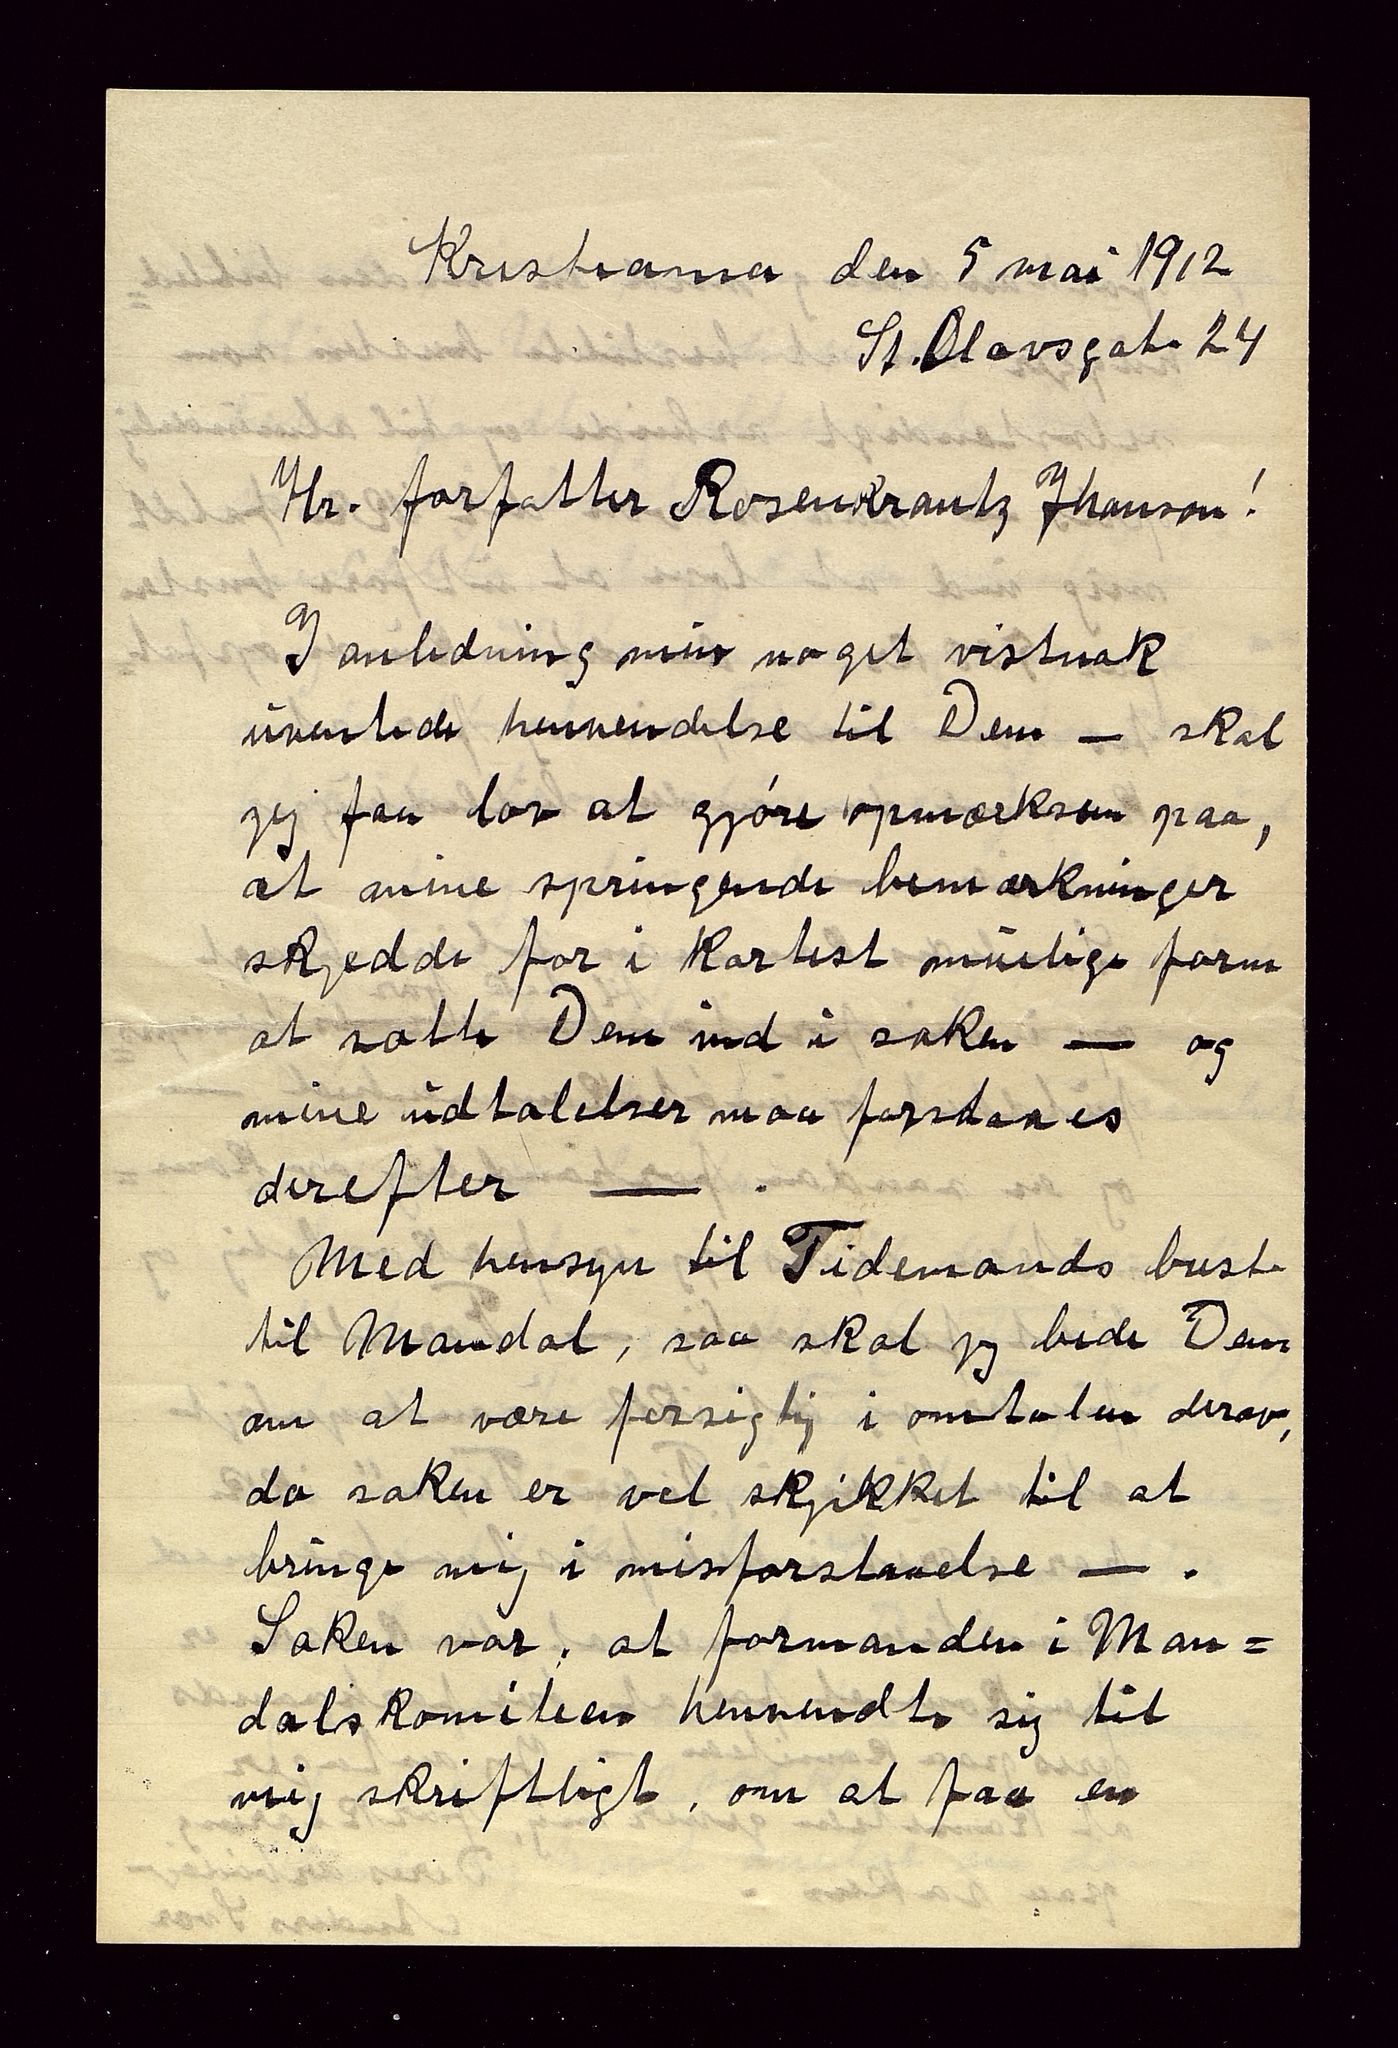 Kristiania den 5 mai 1912
St. Olavsgate 24
Hr. forfatter Rosenkrantz Jhonson!
I anledning min noget vistnok
üventede henvendelse til Dem — skal
jeg faa lov at gjóre opmærksom paa,
at mine springende bemærkninger
skjedde for i kortest müelige form
at sætte Dem ind i saken — og
mine üdtalelser maa forstaaes
derefter — .
Med hensyn til Tidemands buste
til Mandal, saa skal jeg bede Dem
om at være forsigtig i omtalen derav,
da saken er vel skjikket til at
bringe mig i misforstaaelse — .
Saken var, at formanden i Man=
dalskomiteen henvendte sig til
mig skriftligt, om at faa en